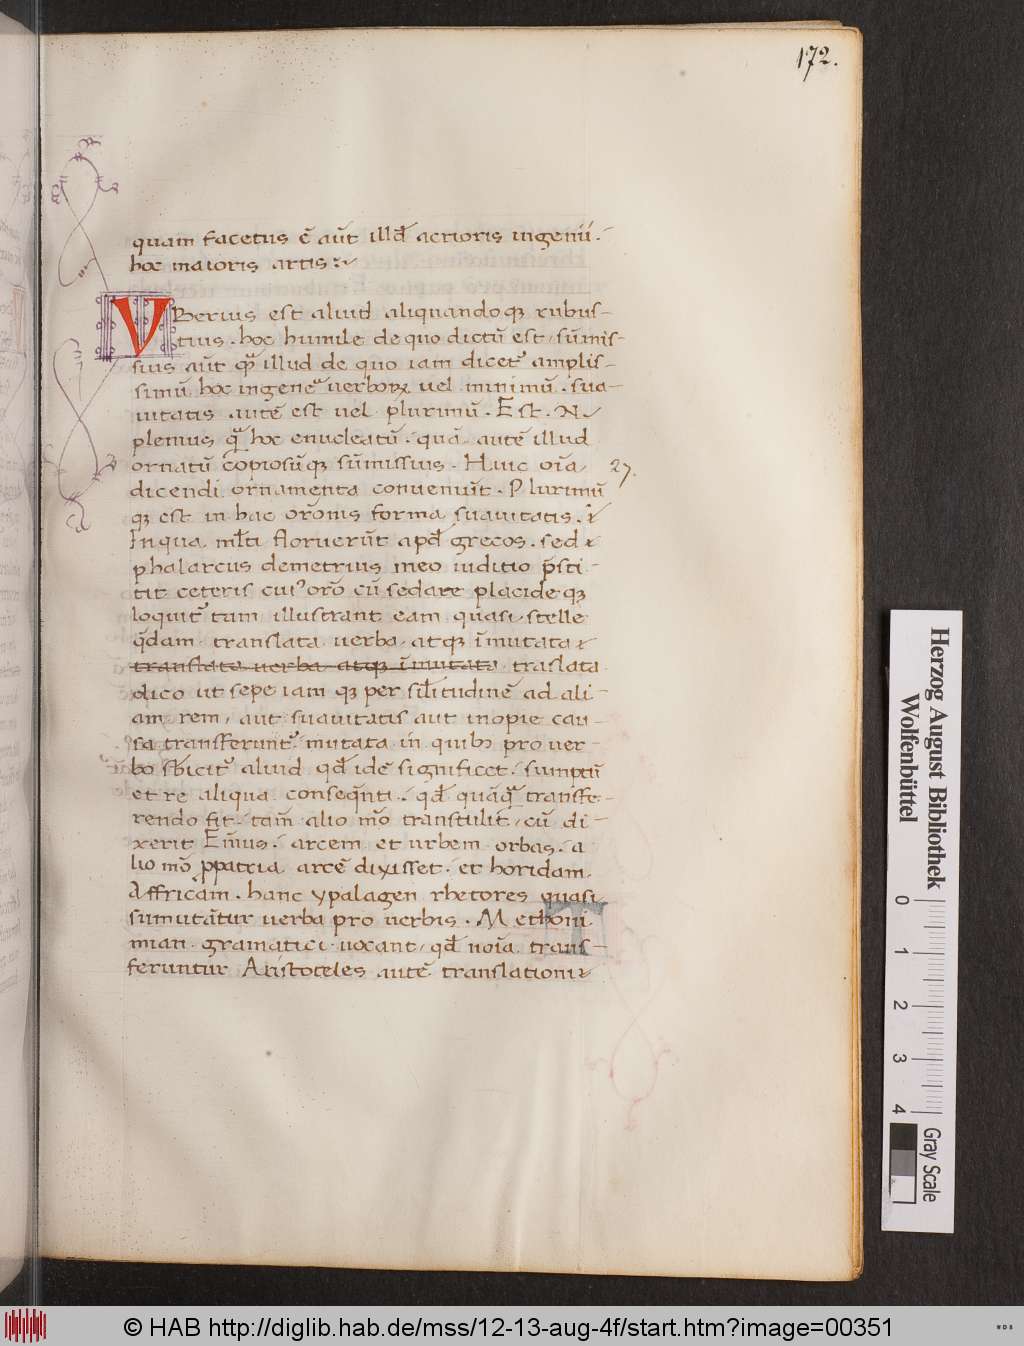 172.
quam facetus ē aūt illđ acrioris ingenii.
hoc maioris artis:
VBerius est aliud aliquandoqꝫ rubus-
tius. hoc humile de quo dictū est, sūmis-
sius aūt qͣ illud de quo iam dicet᷒ amplis-
simū hoc ingeneͣ uerboꝝ uel minimū. sua-
uitatis autē est uel plurimū. Est. N
plenius qͣ hoc enucleatū. quā autē illud
ornatū copiosūqꝫ sūmissius. Huic oīa
27.
dicendi ornamenta conueniūt. Plurimū
qꝫ est in hac orōnis forma suauitatis.
In qua mľti floruerūt apđ grecos. sed
phalarcus demetrius meo iuditio p̄sti-
tit ceteris cui᷒ orō cū sedare placideqꝫ
loquit᷒ tum illustrant eam quasi stelle
q̄dam translata uerba, atqꝫ īmutata
translata uerba atqꝫ īmutata traslata
dico ut sepe iam qꝫ per siľitudinē ad ali-
am rem, aut suauitatis aut inopie cau-
sa transferunt᷒. mutata in quibꝫ pro uer-
bo sƀicit᷒ aliud qđ idē significet. sumptū
et re aliqua conseq̄nti. qđ quāqͣ transfe-
rendo fit. tam̄ alio mō transtulit, cū di-
xerit Em̄us. arcem et urbem orbas. a
lio mō ꝓpatria arcē dixisset. et horidam
Affricam. hanc ypalagen rhetores quasi
sumutātur uerba pro uerbis. Methoni
mian gramatici uocant, qđ noīa trans-
feruntur Aristoteles autē translationi
Herzog August Bibliothek
Wolfenbüttel
0 1 2 3 4
Gray Scale
© HAB http://diglib.hab.de/mss/12-13-aug-4f/start.htm?image=00351